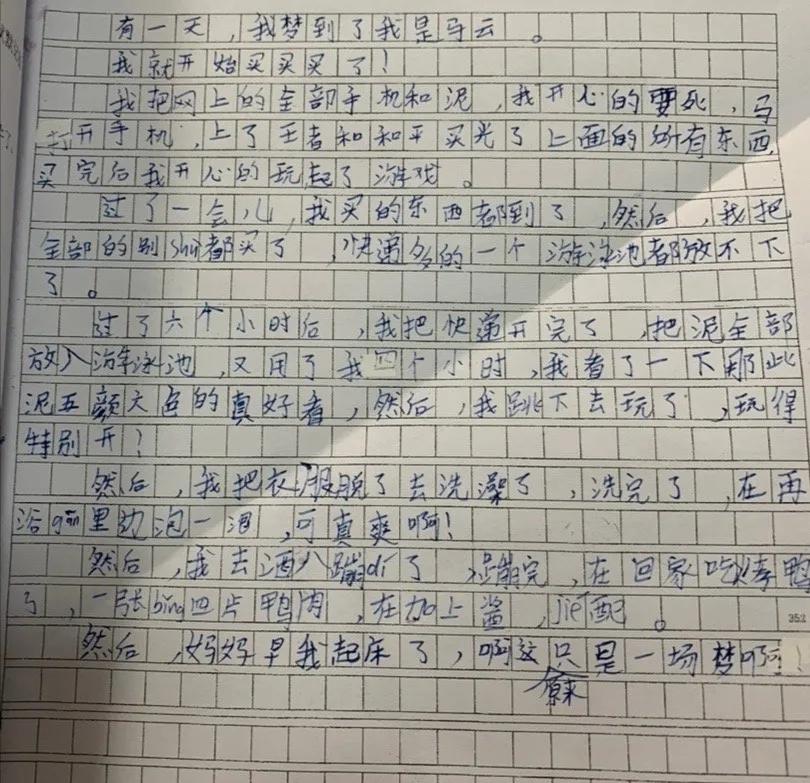 有一天，我梦到了我是马云。
我就开始买买买了！
我把网上的全部手机和泥，我开心的要死，马
打开手机，上了王者和和平买光了上面的所有东西，
买完后我开心的玩起了游戏。
过了一会儿，我买的东西都到了，然后，我把
全部的别shù都买了，快递多的一个游泳池都放不下
了。
过了六个小时后，我把快递开完了，把泥全部
放入游泳池，又用了我四个小时，我看了一下那些
泥五颜六色的真好看，然后，我跳下去玩了，玩得
特别开！
然后，我把衣服脱了去洗澡了，洗完了，在再
浴gān里边泡一泡，可真爽啊！
然后，我去酒八蹦di了，蹦完，在回家吃烤鸭
了，一张bing四片鸭肉，在加上酱，jie配。
352
然后，妈妈早我起床了，啊这只是一场梦啊！
原来